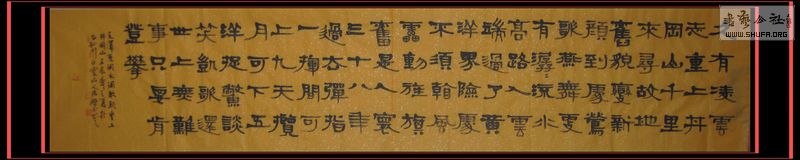 久有凌雲
志重上井
岡山千里
來尋故地
舊貌變新
顔到處鶯
歌燕舞更
有潺潺流水
高路入雲
端過了黃
洋界險處
不須看風
雷動旌旗
奮是人寰
三十八年
過去彈指
一揮間可
上九天攬
月可下五
洋捉鱉談
笑凱歌還
世上無難
事只要肯
登攀
書藝公社
WWW.SHUFA.ORG